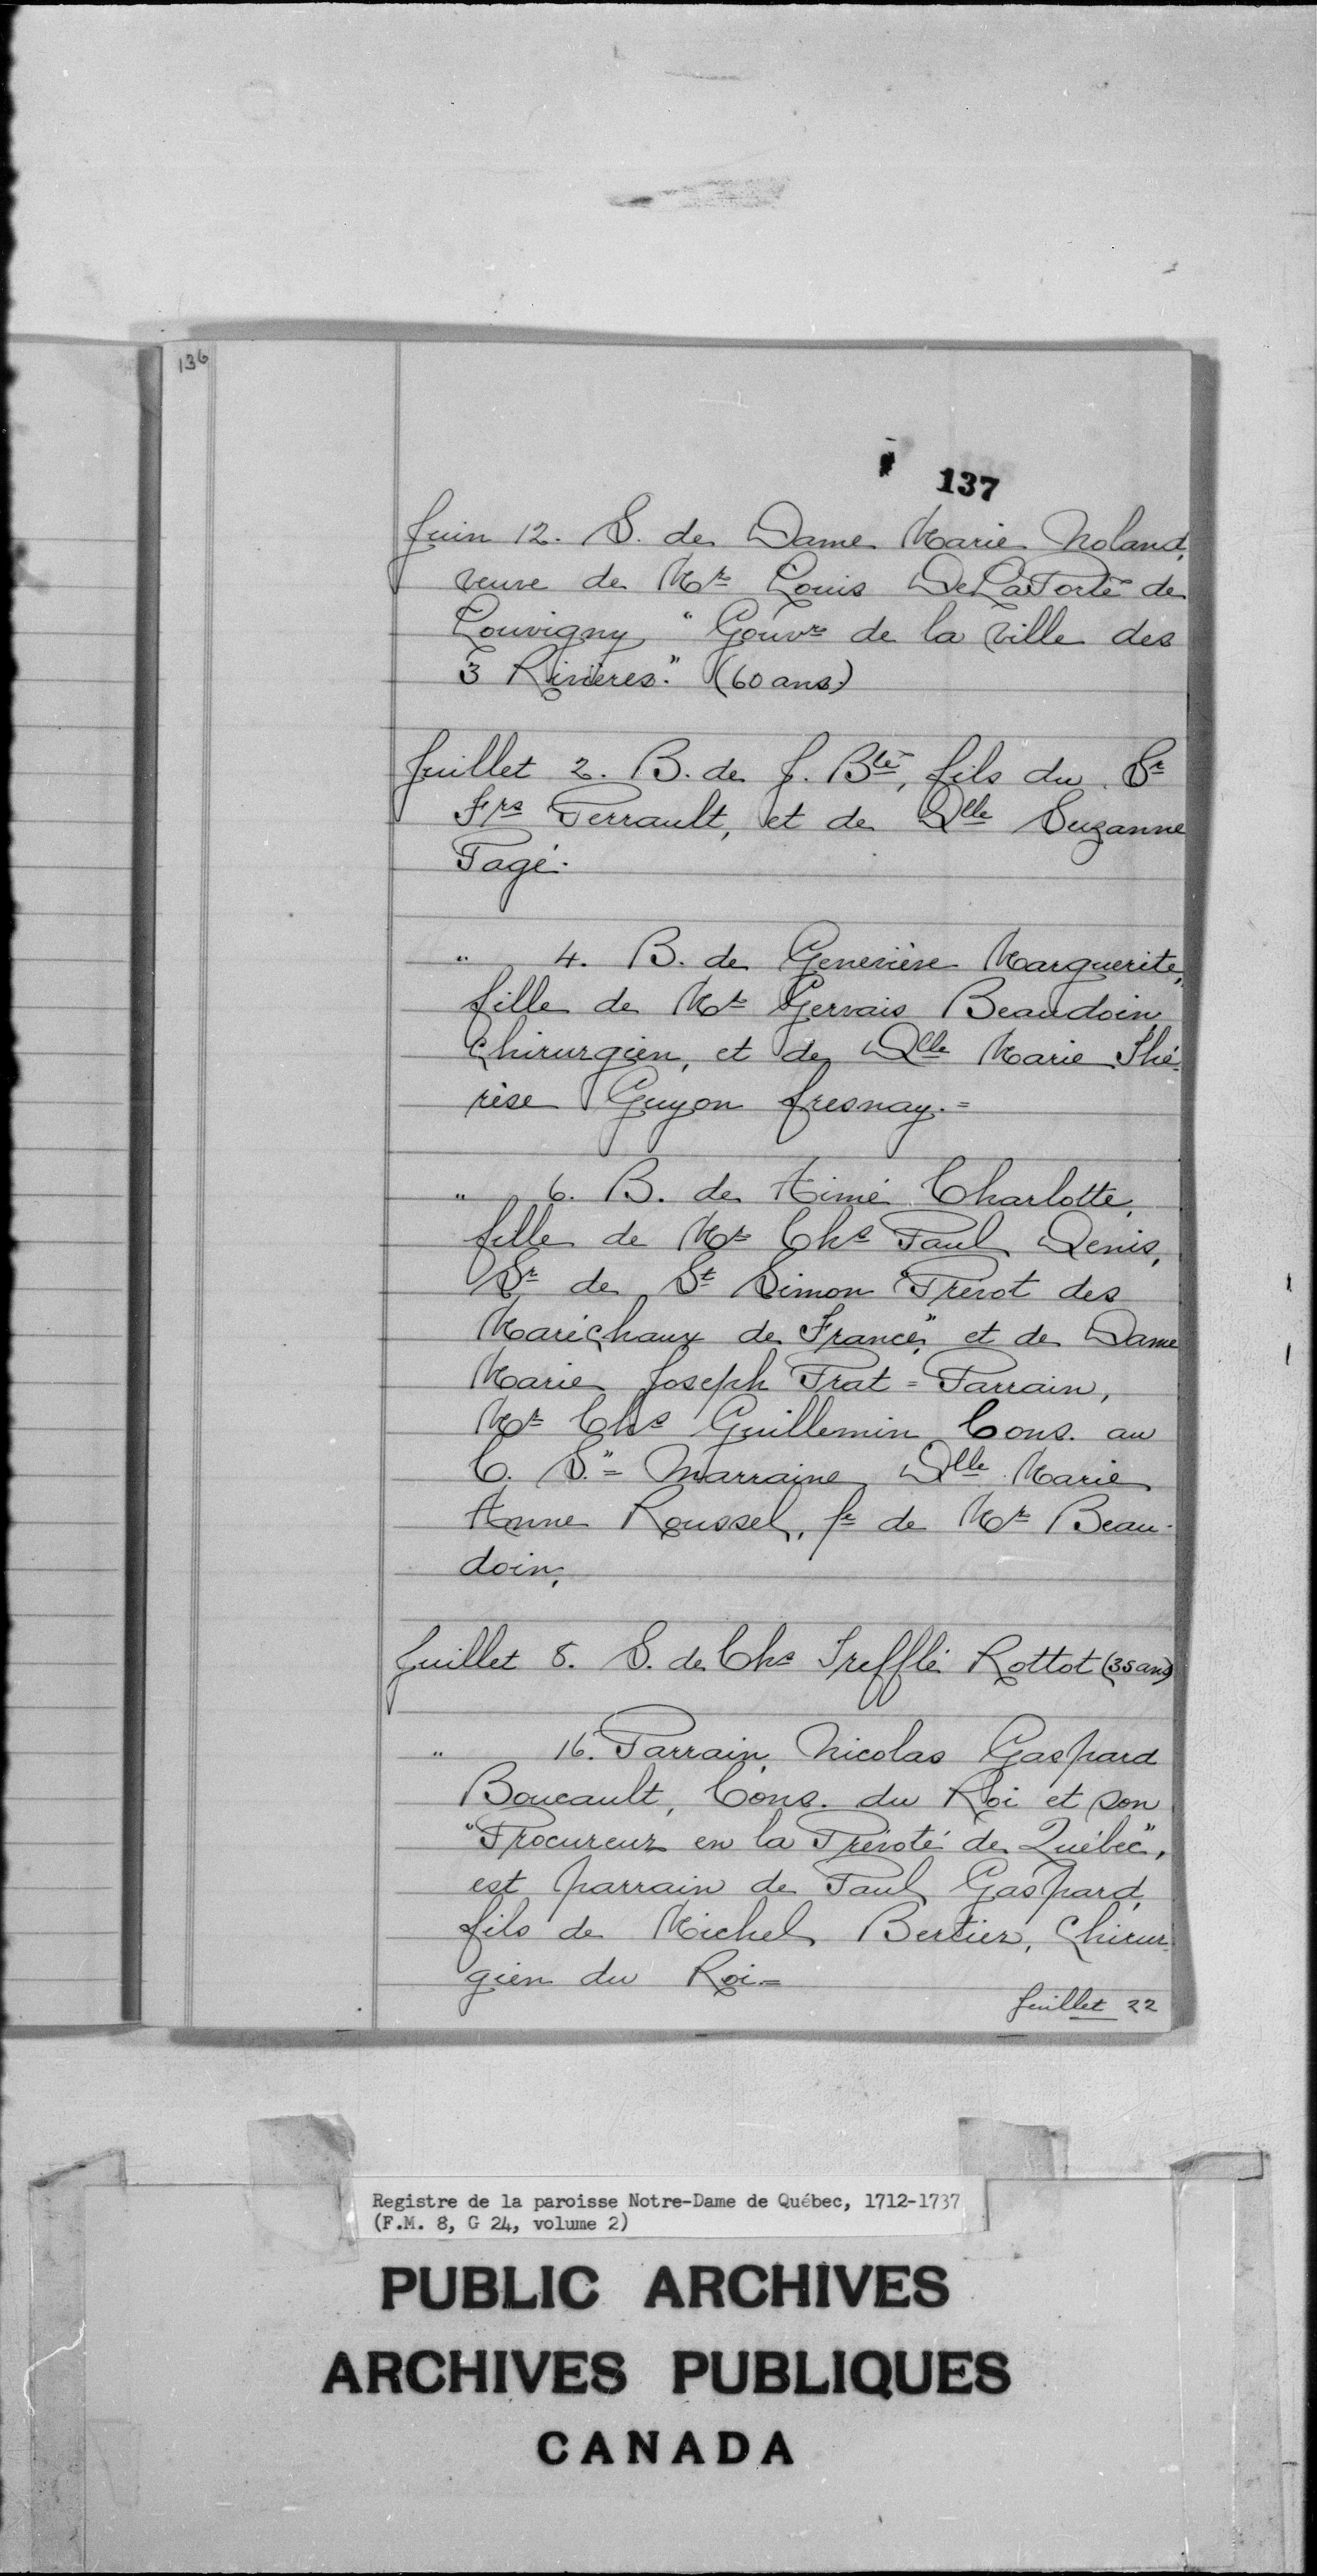 136
137
Juin 12. S. de Dame Marie Noland,
veuve de Mr Louis De LaPorte de
Louvigny, "Gouvr de la ville des
3 Rivières." (60 ans)
Juillet 2. B. de J. Bte, fils du Sr
Frs Perrault, et de Dlle Suzanne
Pagé.
" 4. B. de Geneviève Marguerite,
fille de Mr Gervais Beaudoin,
Chirurgien, et de Dlle Marie Thé-
rèse Guyon fresnay.=
" 6. B. de Aimé Charlotte,
fille de Mr Chs Paul Denis,
Sr de St Simon "Prévot des
Maréchaux de France," et de Dame
Marie Joseph Prat = Parrain,
Mr Chs Guillemin Cons. au
C. S." = Marraine Dlle Marie
Anne Roussel, fe de Mr Beau-
doin,
Juillet 8. S. de Chs Trefflé Rottot (35 ans)
" 16. Parrain, Nicolas Gaspard
Boucault, Cons. du Roi et son
"Procureur en la Prévoté de Québec",
est parrain de Paul Gaspard,
fils de Michel Bertier, Chirur-
gien du Roi =
Juillet 22
Registre de la paroisse Notre-Dame de Québec, 1712-1737
(F.M. 8, G 24, volume 2)
PUBLIC ARCHIVES
ARCHIVES PUBLIQUES
CANADA